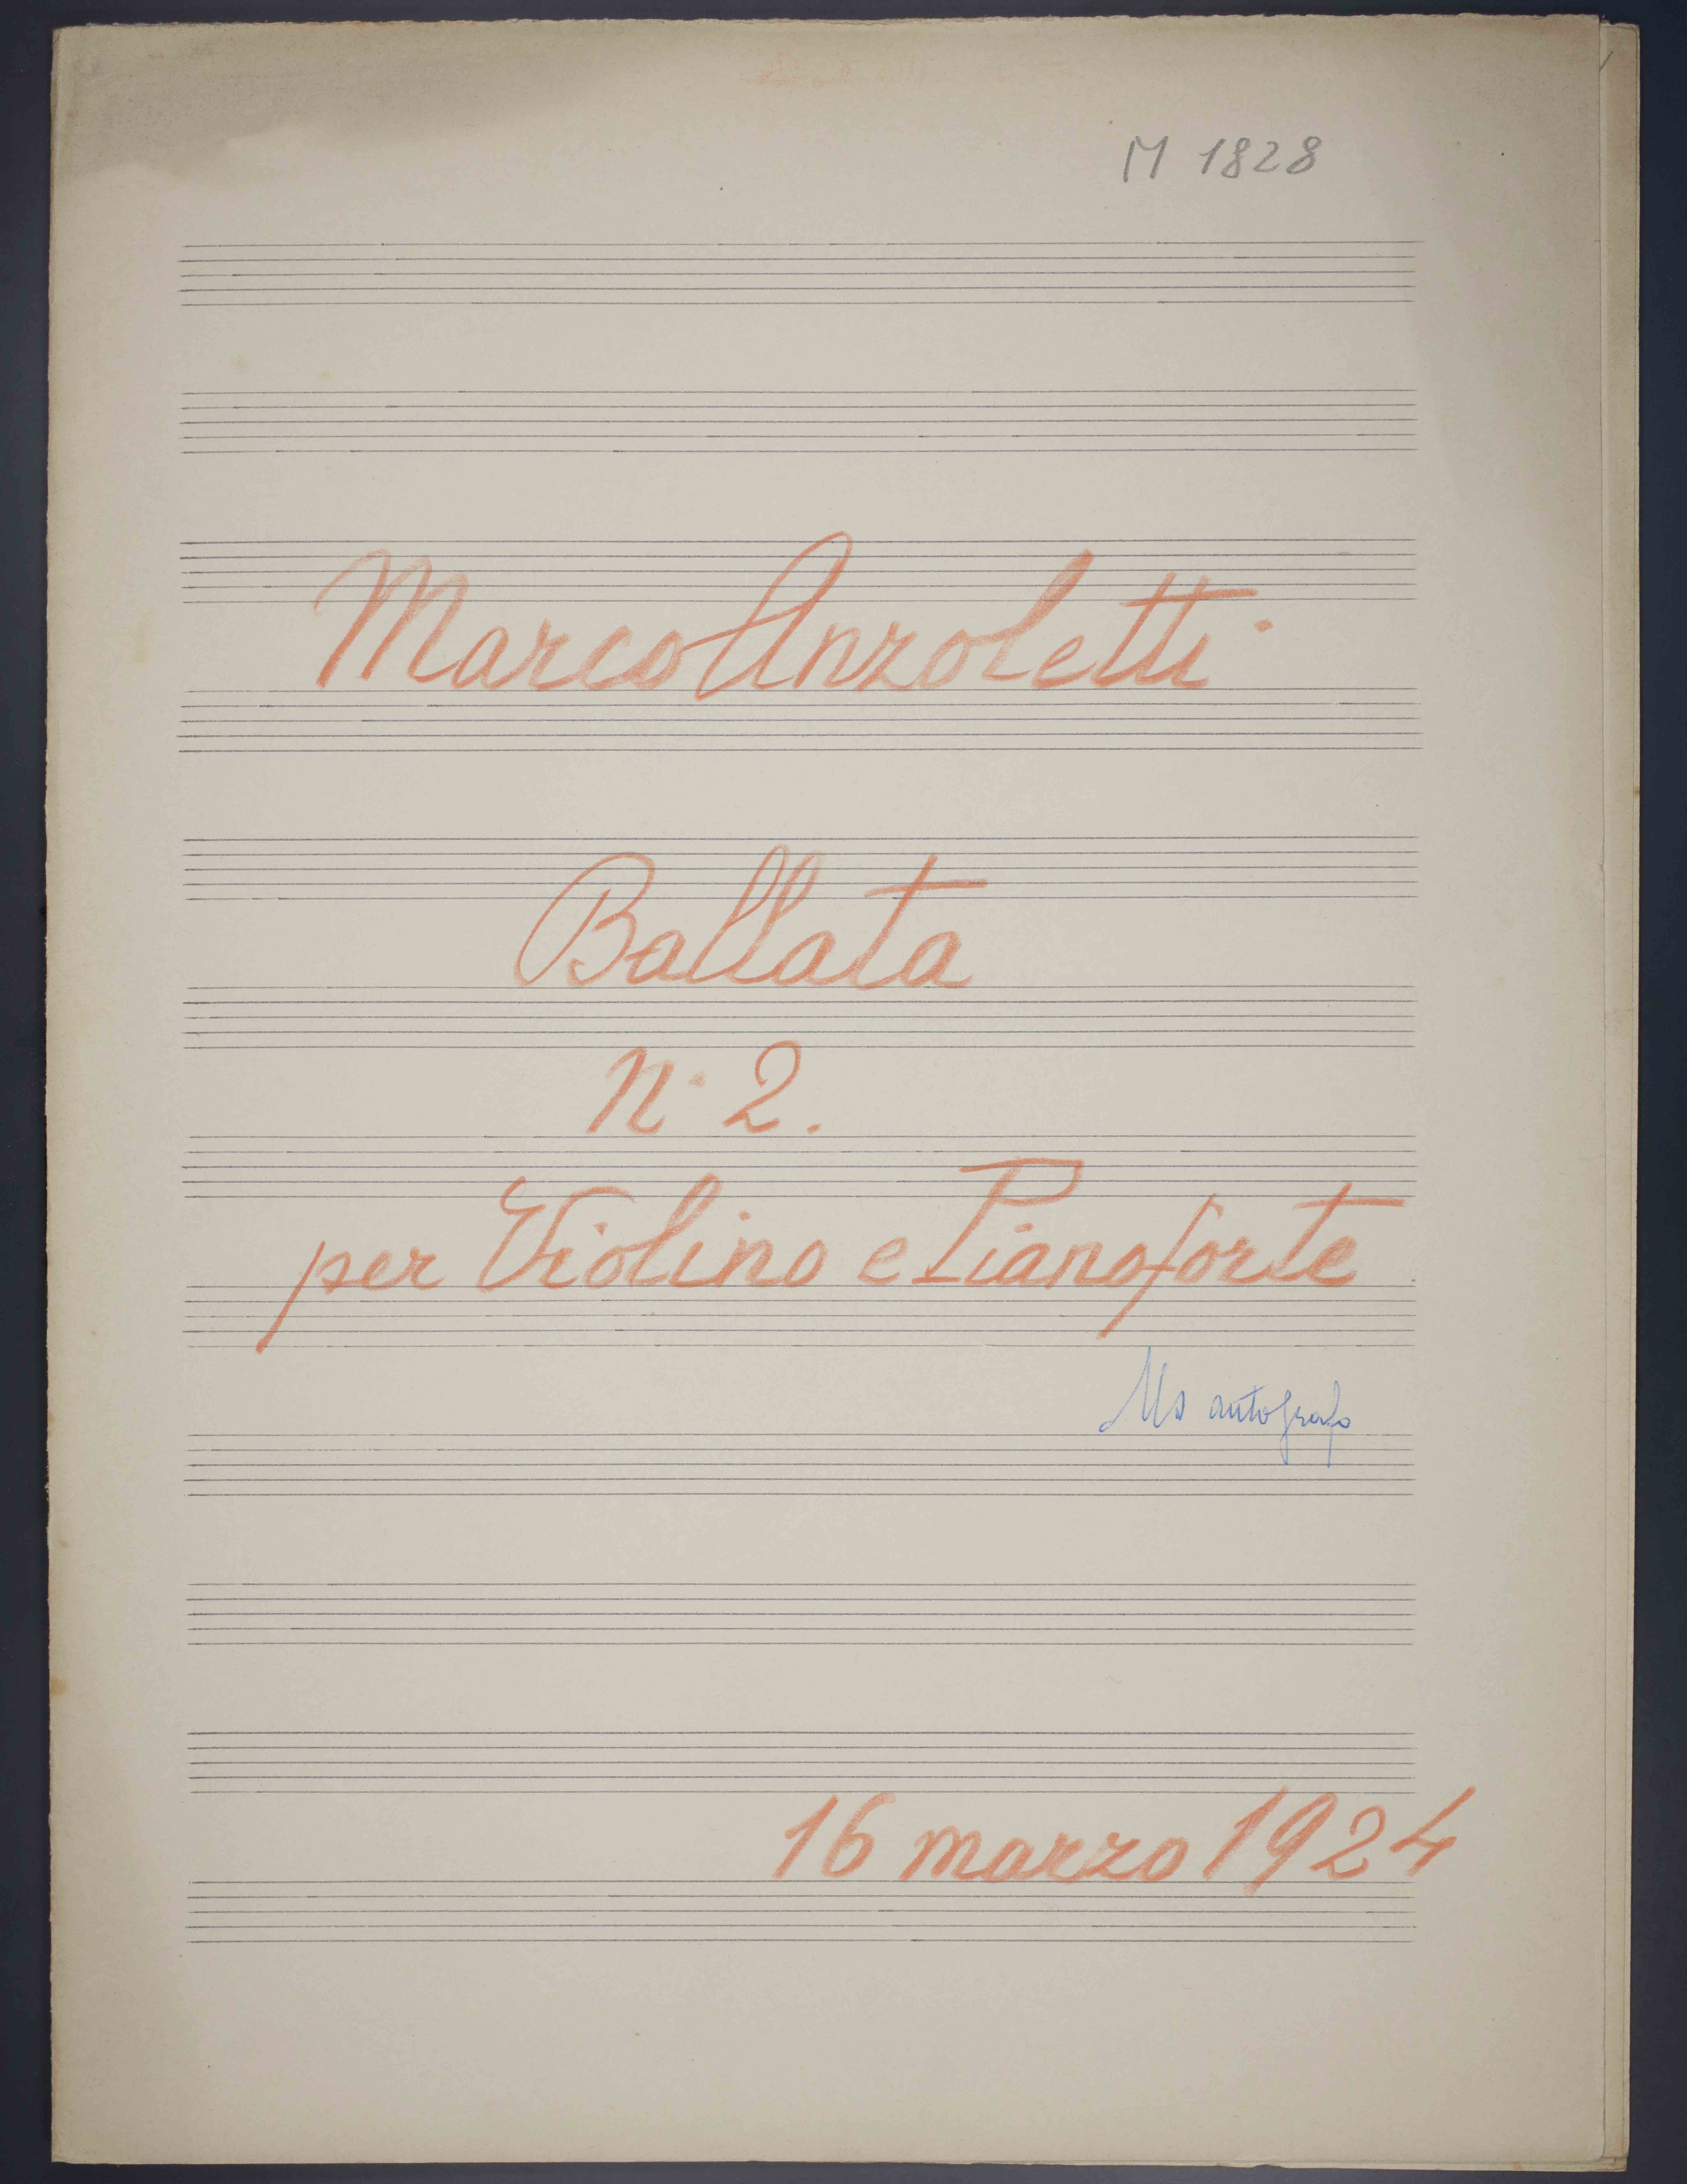 M 1828
Marco Anzoletti
Ballata
N. 2.
per Violino e Pianoforte
Ms autografo
16 marzo 1924